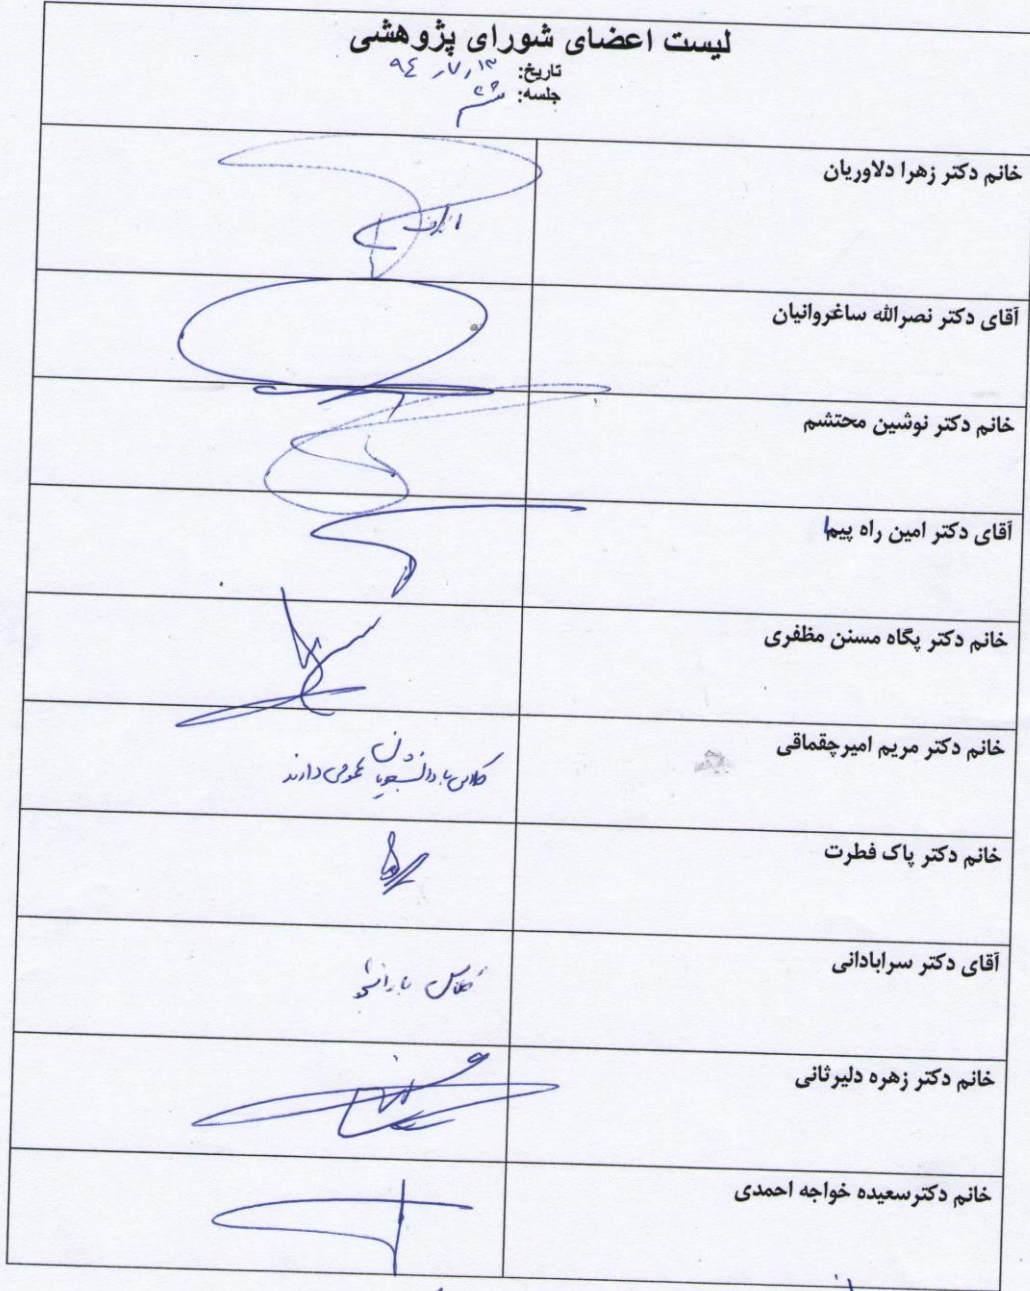 لیست اعضای شورای پژوهشی
تاریخ: ۹۴
جلسه: ششم
خانم دکتر زهرا دلاوریان
آقای دکتر نصرالله ساغروانیان
خانم دکتر نوشین محتشم
آقای دکتر امین راه پیما
خانم دکتر پگاه مسنن مظفری
خانم دکتر مریم امیرچقماقی
کلاس با دانشجویان عمومی دارند
خانم دکتر پاک فطرت
آقای دکتر سرابادانی
کلاس با دانشجو
خانم دکتر زهره دلیرثانی
خانم دکترسعیده خواجه احمدی